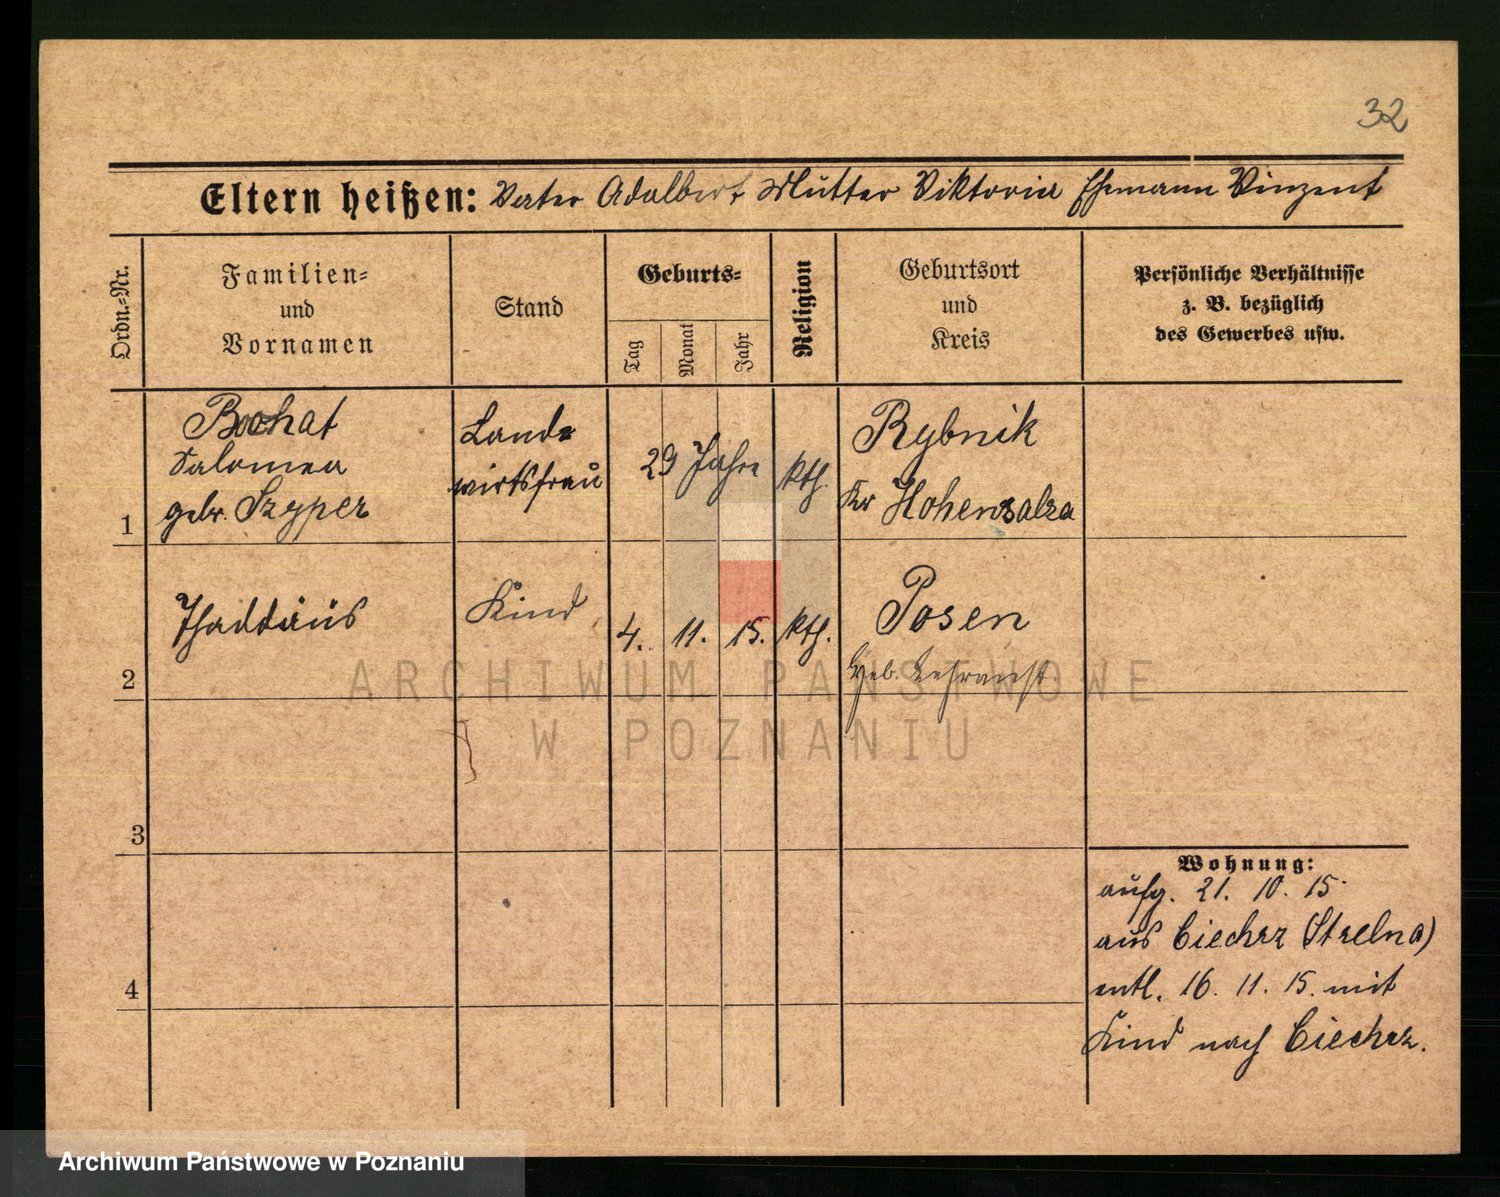 32
Eltern heißen: Vater Adalbert Mutter Viktoria Ehemann Vinzent
Ordn.=Nr.
Familien=
und
Vornamen
Stand
Geburts=
Tag
Monat
Jahr
Religion
Geburtsort
und
Kreis
Persönliche Verhältnisse
z. B. bezüglich
des Gewerbes usw.
1
Bochat
Salomea
gebr. Szyper
Land=
wirtsfrau
29 Jahre
kth.
Rybnik
Kr Hohensalza
2
Thaddäus
Kind
4. 11. 15.
kth.
Posen
Heb. Lehranst
3
4
Wohnung:
aufg. 21. 10. 15.
aus Ciechrz (Strelno)
entl. 16. 11. 15. mit
Kind nach Ciechrz.
ARCHIWUM PAŃSTWOWE
W POZNANIU
Archiwum Państwowe w Poznaniu